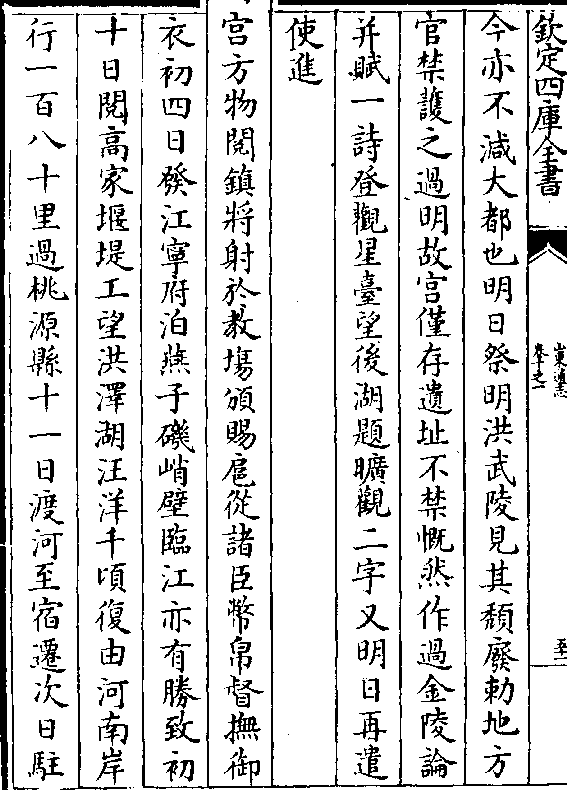 欽定四庫全書
山東通志
卷十之一
至二
今亦不減大都也明日祭明洪武陵見其頹廢勅地方
官禁護之過明故宮僅存遺址不禁慨然作過金陵論
并賦一詩登觀星臺望後湖題曠觀二字又明日再遣
使進
宮方物閱鎮將射於教塲頒賜扈從諸臣幣帛督撫御
衣初四日發江寧府泊燕子磯峭壁臨江亦有勝致初
十日閱高家堰堤工望洪澤湖汪洋千頃復由河南岸
行一百八十里過桃源縣十一日渡河至宿遷次日駐